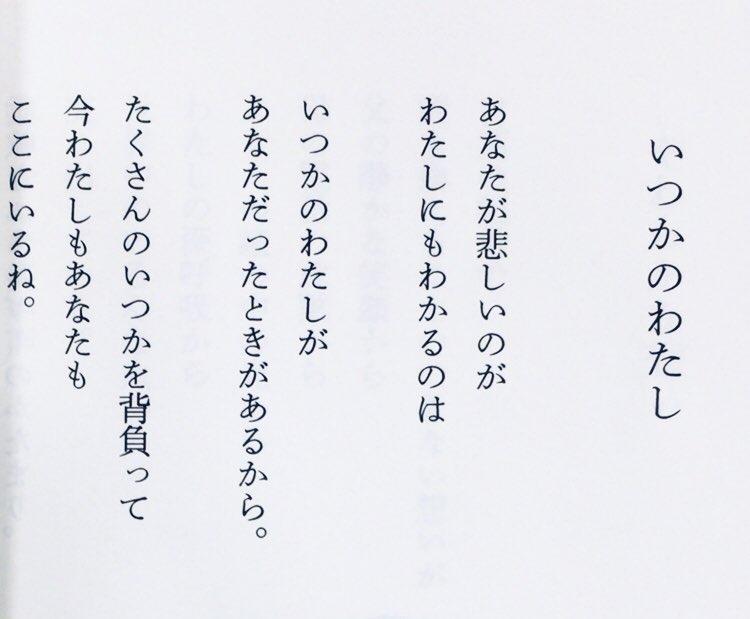 いつかのわたし
あなたが悲しいのが
わたしにもわかるのは
いつかのわたしが
あなただったときがあるから。
たくさんのいつかを背負って
今わたしもあなたも
ここにいるね。